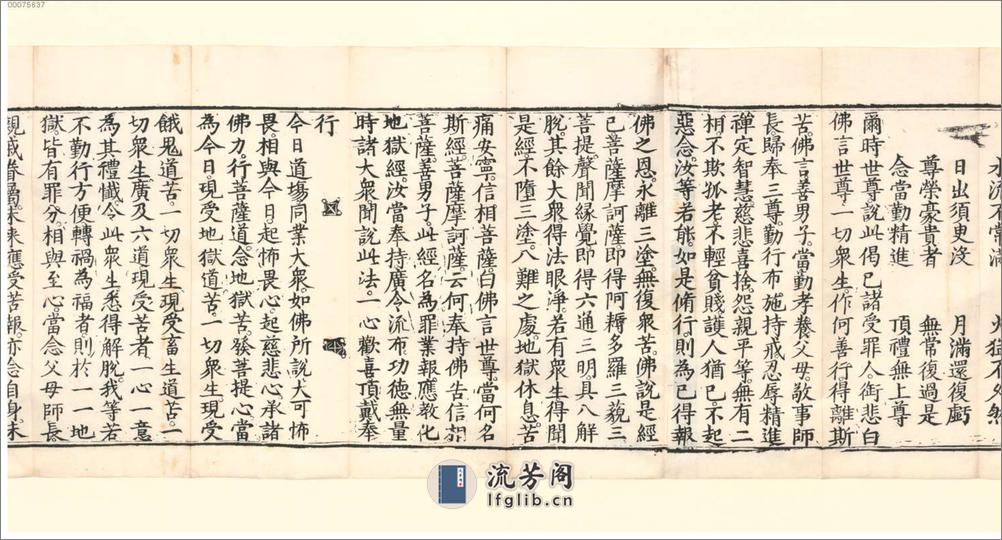 00075637
水流不常滿　火盛不久然
日出須臾沒　月滿還復虧
尊榮豪貴者　無常復過是
念當勤精進　頂禮無上尊
爾時世尊說此偈已諸受罪人銜悲白
佛言世尊一切眾生作何善行得離斯
苦。佛言善男子。當勤孝養父母。敬事師
長歸奉三尊勤行布施持戒忍辱精進
禪定智慧慈悲喜捨怨親平等。無有二
相不欺孤老不輕貧賤護人猶己不起
惡念。汝等若能。如是脩行則為已得報
佛之恩。永離三塗無復眾苦。佛說是經
已菩薩摩訶薩即得阿耨多羅三藐三
菩提。聲聞緣覺即得六通三明。具八解
脫。其餘大眾得法眼淨。若有眾生得聞
是經不墮三塗。八難之處。地獄休息。苦
痛安寧。信相菩薩。白佛言世尊當何名
斯經菩薩摩訶薩云何奉持佛告信相
菩薩善男子此經名為罪業報應教化
地獄經汝當奉持廣令流布功德無量
時諸大眾聞說此法。一心歡喜頂戴奉
行
今日道場同業大眾。如佛所說大可怖
畏。相與今日起怖畏心。起慈悲心承諸
佛力。行菩薩道。念地獄苦。發菩提心當
為今日。現受地獄道苦。一切眾生現受
餓鬼道苦。一切眾生現受畜生道苦。一
切眾生廣及六道現受苦者一心一意
為其禮懺。令此眾生悉得解脫。我等若
不勤行方便轉禍為福者則於一一地
獄皆有罪分。相與至心。當念父母師長
親戚眷屬未來應受苦報亦念自身。未
流芳阁
lfglib.cn